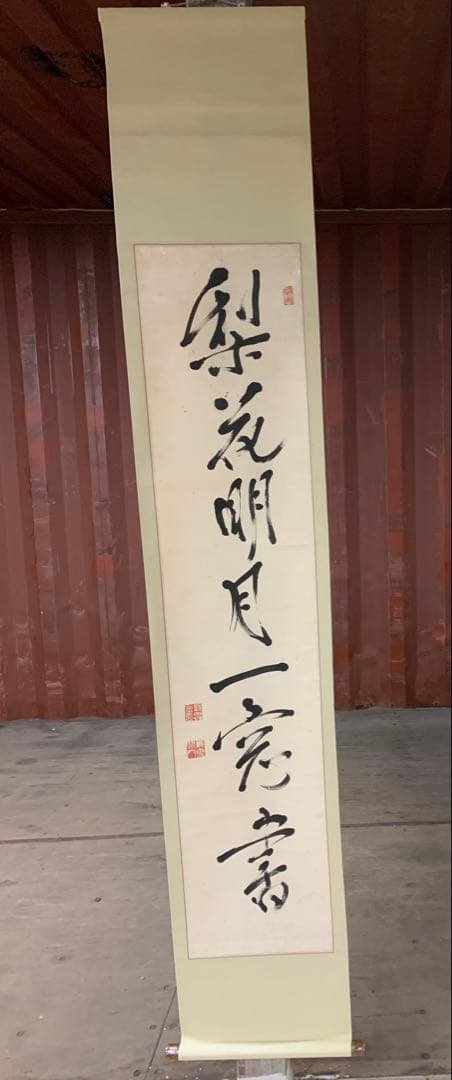 梨花明月一窓書